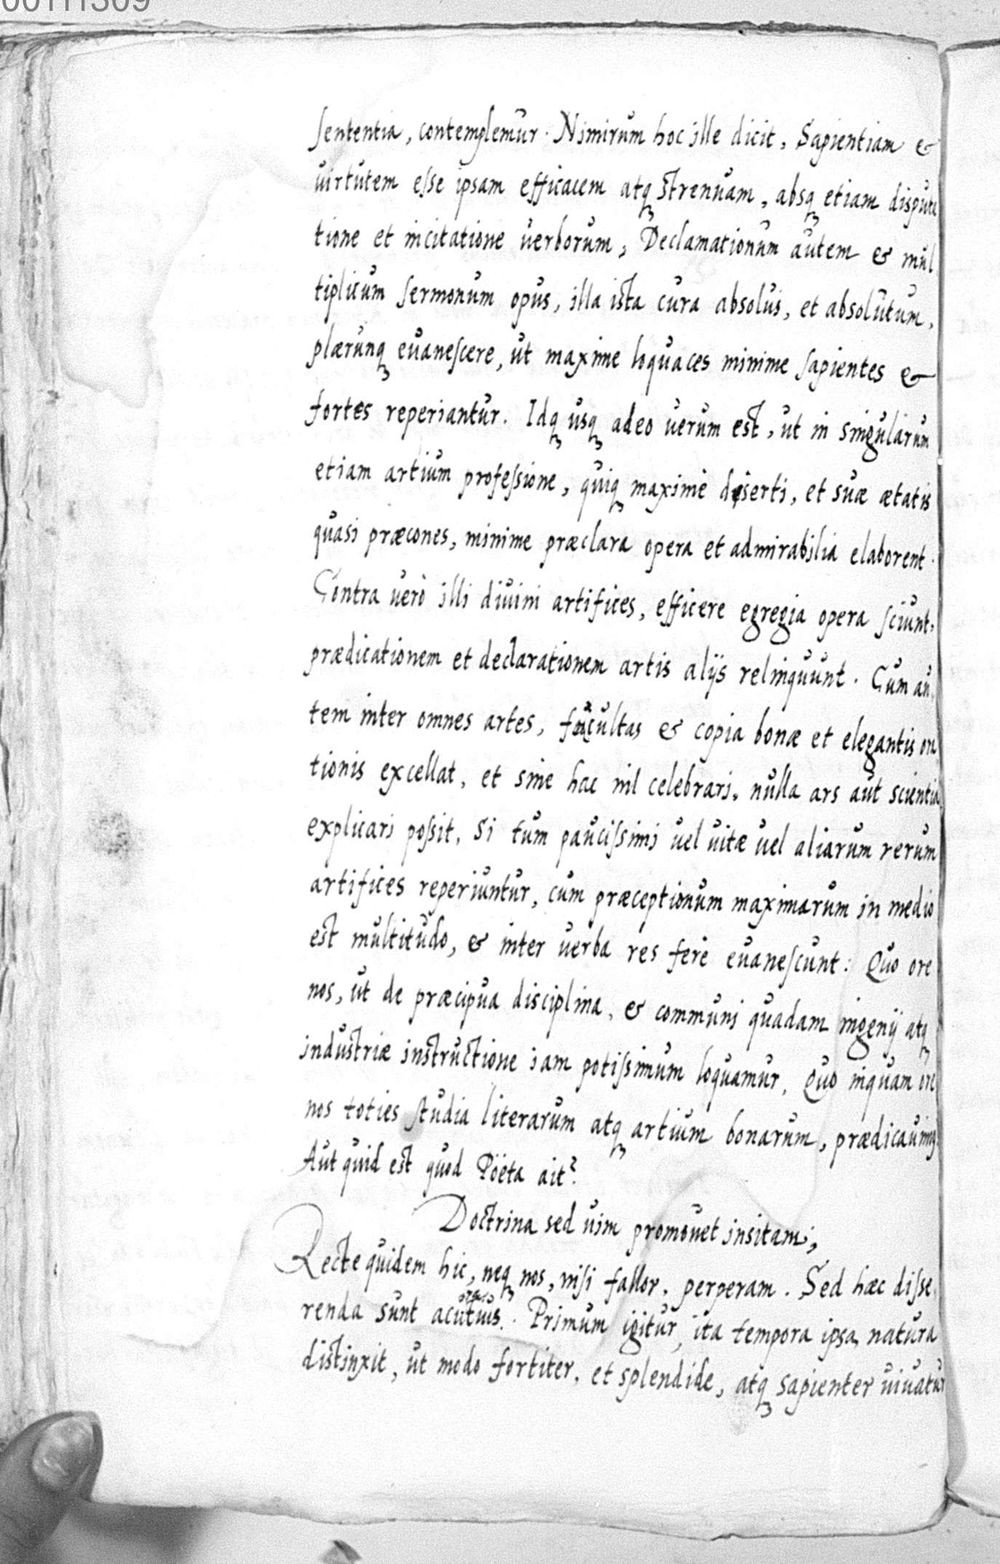 00111309
sententia, contemplemur. Nimirum hoc ille dicit, Sapientiam &
uirtutem esse ipsam efficacem atq strenuam, absq etiam disputa
tione et incitatione uerborum, Declamationum autem & mul
tiplicum sermonum opus, illa ista cura absolui, et absolutum,
plærunq euanescere, ut maxime loquaces minime sapientes &
fortes reperiantur. Idq usq adeo uerum est, ut in singularum
etiam artium professione, quiq maximè diserti, et suæ ætatis
quasi præcones, minime præclara opera et admirabilia elaborent.
Contra uerò illi diuini artifices, efficere egregia opera sciunt,
prædicationem et declarationem artis alijs relinquunt. Cum au,
tem inter omnes artes, facultas & copia bonæ et elegantis ora
tionis excellat, et sine hac nil celebrari, nulla ars aut scientia
explicari possit, Si tum paucissimi uel uitæ uel aliarum rerum
artifices reperiuntur, cum præceptionum maximarum in medio
est multitudo, & inter uerba res ferè euanescunt: Quo ore
nos, ut de præcipua disciplina, & communi quadam ingenij atq
industriæ instructione iam potissimum loquamur, Quo inquam ore
nos toties studia literarum atq artium bonarum, prædicauimus
Aut quid est quod Pöeta ait?
Doctrina sed uim promouet insitam;
Recte quidem hic, neq nos, nisi fallor, perperam. Sed hæc disse,
renda sunt acutius. Primum igitur, ita tempora ipsa natura
distinxit, ut modo fortiter, et splendide, atq sapienter uiuatur